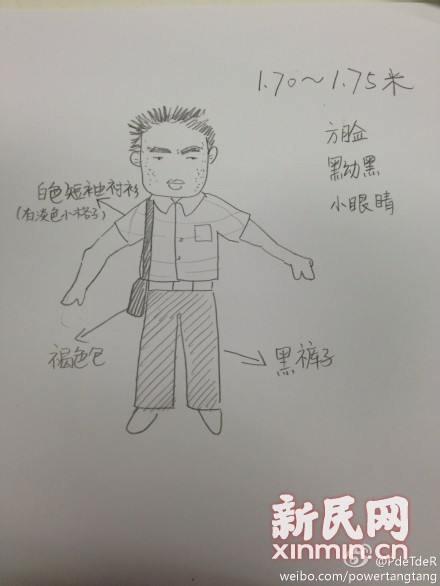 1.70～1.75米
方脸
黑幼黑
小眼睛
白色短袖衬衫
(有浅色小格子)
褐色包
黑裤子
新民网
xinmin.cn
@PdeTdeR
weibo.com/powertangtang